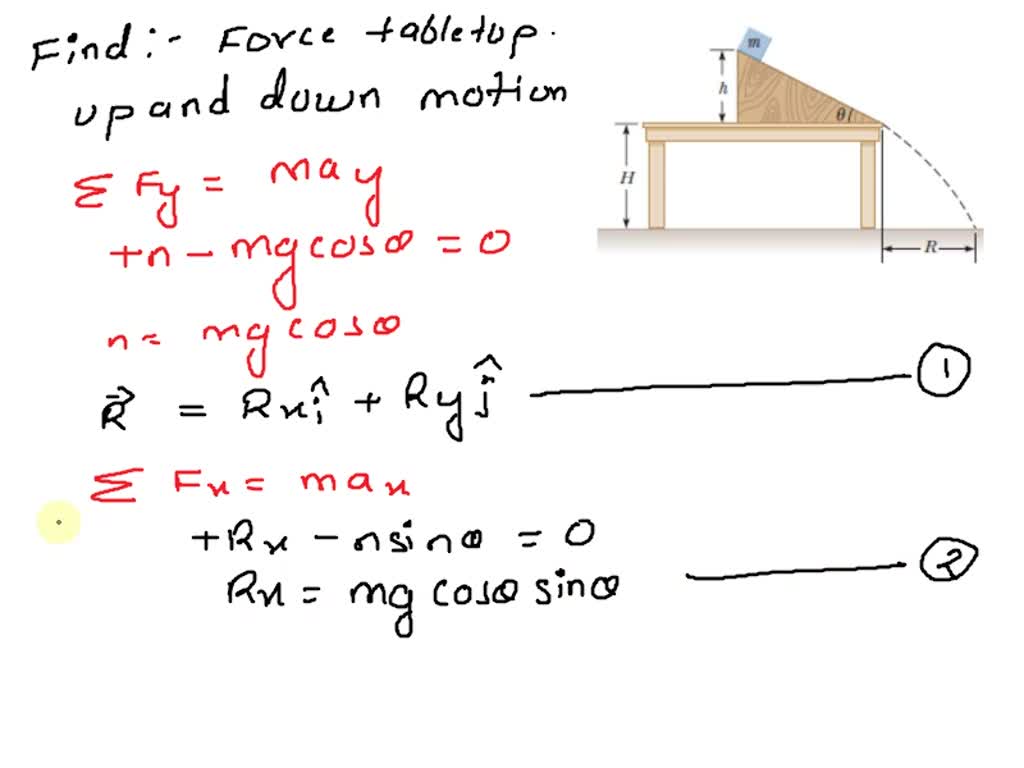 Find:- Force tabletop.
up and down motion
Σ Fy = may
+n - mg cosθ = 0
n = mg cosθ
R⃗ = Rx î + Ry ĵ ——— ①
Σ Fx = max
+Rx - n sinθ = 0
Rx = mg cosθ sinθ ——— ②
m
h
θ
H
R